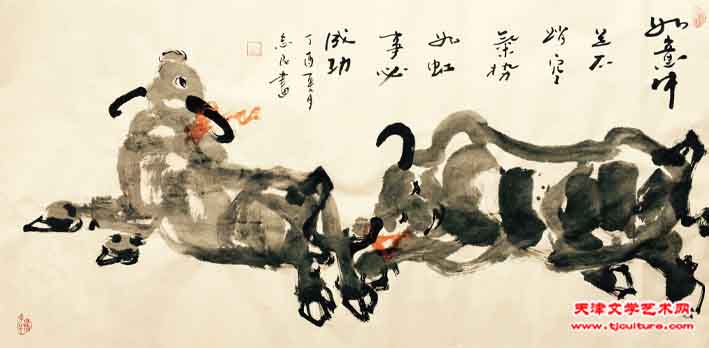 如意牛
足不
踏空
氣勢
如虹
事必
成功
丁酉夏月
天津文学艺术网
www.tjculture.com